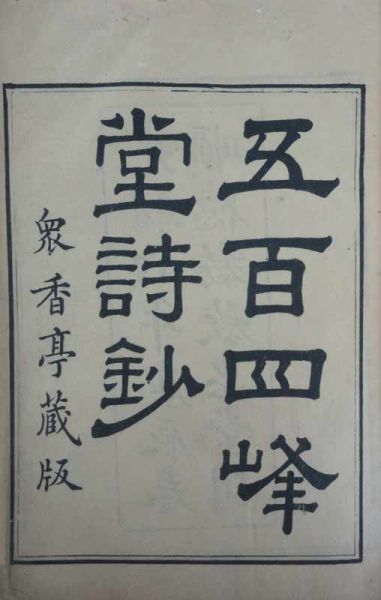 五百四峰
堂詩鈔
衆香亭藏版